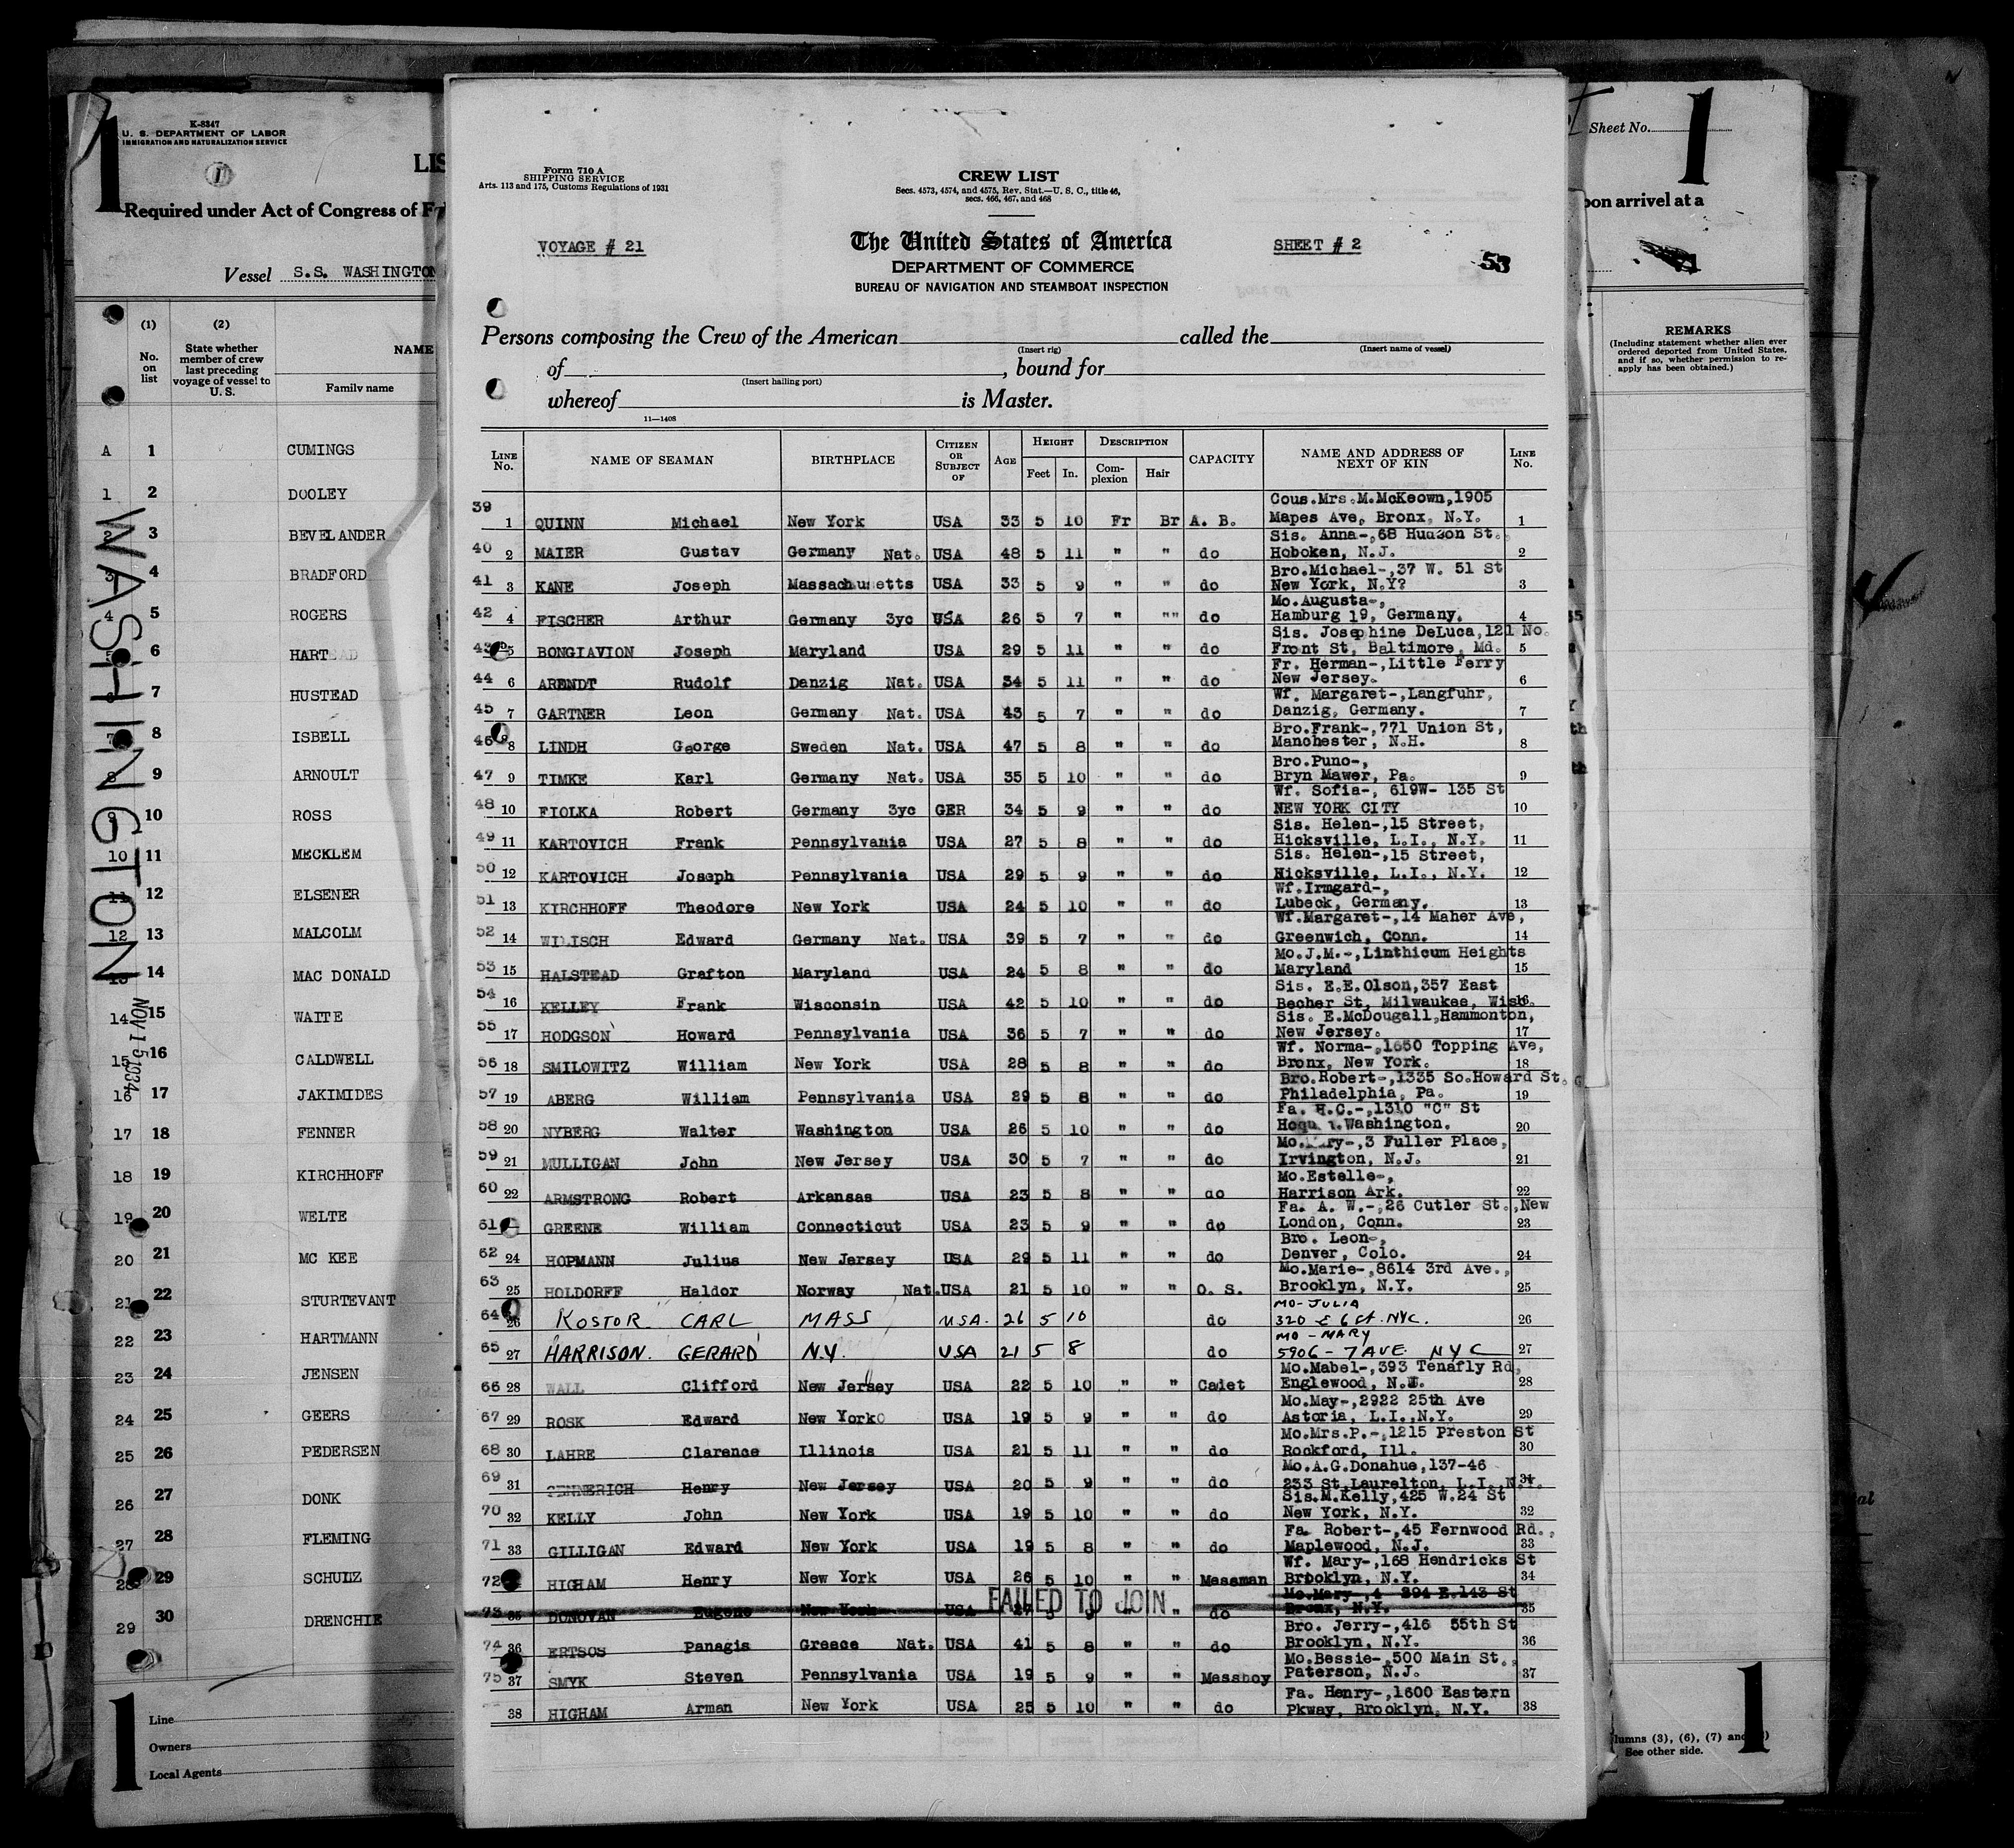 K-8347
U. S. DEPARTMENT OF LABOR
IMMIGRATION AND NATURALIZATION SERVICE
1
I
LIS
Required under Act of Congress of F
Vessel S.S. WASHINGTON
(1) (2)
No. on list
State whether member of crew last preceding voyage of vessel to U. S.
NAME
Family name
A 1 CUMINGS
1 2 DOOLEY
2 3 BEVELANDER
3 4 BRADFORD
4 5 ROGERS
5 6 HART
7 HUSTEAD
7 8 ISBELL
8 9 ARNOULT
9 10 ROSS
10 11 MECKLEM
11 12 ELSENER
12 13 MALCOLM
13 14 MAC DONALD
14 15 WAITE
15 16 CALDWELL
16 17 JAKIMIDES
17 18 FENNER
18 19 KIRCHHOFF
19 20 WELTE
20 21 MC KEE
21 22 STURTEVANT
22 23 HARTMANN
23 24 JENSEN
24 25 GEERS
25 26 PEDERSEN
26 27 DONK
27 28 FLEMING
28 29 SCHULZ
29 30 DRENCHIE
WASHINGTON
NOV 15 1934
1
Line
Owners
Local Agents
Form 710 A
SHIPPING SERVICE
Arts. 113 and 175, Customs Regulations of 1931
CREW LIST
Secs. 4573, 4574, and 4575, Rev. Stat.—U. S. C., title 46,
secs. 466, 467, and 468
VOYAGE # 21
The United States of America
SHEET # 2
53
DEPARTMENT OF COMMERCE
BUREAU OF NAVIGATION AND STEAMBOAT INSPECTION
Persons composing the Crew of the American called the
(Insert rig) (Insert name of vessel)
of , bound for
(Insert hailing port)
whereof is Master.
11—1408
LINE No. NAME OF SEAMAN BIRTHPLACE CITIZEN OR SUBJECT OF AGE HEIGHT Feet In. DESCRIPTION Complexion Hair CAPACITY NAME AND ADDRESS OF NEXT OF KIN LINE No.
Cous.Mrs.M.McKeown,1905
39 1 QUINN Michael New York USA 33 5 10 Fr Br A. B. Mapes Ave, Bronx, N.Y. 1
Sis. Anna-,68 Hudson St.
40 2 MAIER Gustav Germany Nat. USA 48 5 11 " " do Hoboken, N.J. 2
Bro.Michael-,37 W. 51 St
41 3 KANE Joseph Massachusetts USA 33 5 9 " " do New York, N.Y? 3
Mo.Augusta-,
42 4 FISCHER Arthur Germany 3yc USA 26 5 7 " "" do Hamburg 19, Germany. 4
Sis. Josephine DeLuca,121 No.
43 5 BONGIAVION Joseph Maryland USA 29 5 11 " " do Front St, Baltimore, Md. 5
Fr. Herman-,Little Ferry
44 6 ARENDT Rudolf Danzig Nat. USA 34 5 11 " " do New Jersey. 6
Wf. Margaret-,Langfuhr,
45 7 GARTNER Leon Germany Nat. USA 43 5 7 " " do Danzig, Germany. 7
Bro.Frank-,771 Union St,
46 8 LINDH George Sweden Nat. USA 47 5 8 " " do Manchester, N.H. 8
Bro.Puno-,
47 9 TIMKE Karl Germany Nat. USA 35 5 10 " " do Bryn Mawer, Pa. 9
Wf. Sofia-, 619W- 135 St
48 10 FIOLKA Robert Germany 3yc GER 34 5 9 " " do NEW YORK CITY 10
Sis. Helen-,15 Street,
49 11 KARTOVICH Frank Pennsylvania USA 27 5 8 " " do Hicksville, L.I., N.Y. 11
Sis. Helen-,15 Street,
50 12 KARTOVICH Joseph Pennsylvania USA 29 5 9 " " do Hicksville, L.I., N.Y. 12
Wf.Irmgard-,
51 13 KIRCHHOFF Theodore New York USA 24 5 10 " " do Lubeck, Germany. 13
Wf.Margaret-,14 Maher Ave,
52 14 WILISCH Edward Germany Nat. USA 39 5 7 " " do Greenwich, Conn. 14
Mo.J.M.-,Linthicum Heights
53 15 HALSTEAD Grafton Maryland USA 24 5 8 " " do Maryland 15
Sis. E.E.Olson,357 East
54 16 KELLEY Frank Wisconsin USA 42 5 10 " " do Becher St, Milwaukee, Wisc. 16
Sis. E.McDougall,Hammonton,
55 17 HODGSON Howard Pennsylvania USA 36 5 7 " " do New Jersey. 17
Wf. Norma-,1650 Topping Ave,
56 18 SMILOWITZ William New York USA 28 5 8 " " do Bronx, New York. 18
Bro.Robert-,1335 So.Howard St.
57 19 ABERG William Pennsylvania USA 29 5 8 " " do Philadelphia, Pa. 19
Fa. H.C.-,1310 "C" St
58 20 NYBERG Walter Washington USA 26 5 10 " " do Washington. 20
Mo. -,3 Fuller Place,
59 21 MULLIGAN John New Jersey USA 30 5 7 " " do Irvington, N.J. 21
Mo.Estelle-,
60 22 ARMSTRONG Robert Arkansas USA 23 5 8 " " do Harrison Ark. 22
Fa. A. W.-,26 Cutler St.,New
61 GREENE William Connecticut USA 23 5 9 " " do London, Conn. 23
Bro. Leon-,
62 24 HOPMANN Julius New Jersey USA 29 5 11 " " do Denver, Colo. 24
Mo.Marie-,8614 3rd Ave.,
63 25 HOLDORFF Haldor Norway Nat. USA 21 5 10 " " O. S. Brooklyn, N.Y. 25
MO-JULIA
64 26 KOSTOR CARL MASS USA. 26 5 10 do 320 E 6 St. NYC. 26
MO - MARY
65 27 HARRISON. GERARD N.Y. USA 21 5 8 do 5906 - 7 AVE. NYC 27
Mo.Mabel-,393 Tenafly Rd,
66 28 WALL Clifford New Jersey USA 22 5 10 " " Cadet Englewood, N.J. 28
Mo.May-,2922 25th Ave
67 29 ROSK Edward New York USA 19 5 9 " " do Astoria, L.I.,N.Y. 29
Mo.Mrs.P.-,1215 Preston St
68 30 LAHRE Clarence Illinois USA 21 5 11 " " do Rockford, Ill. 30
Mo.A.G.Donahue,137-46
69 31 Henry New Jersey USA 20 5 9 " " do 233 St,Laurelton, L.I.,N.Y. 31
Sis.M.Kelly,425 W.24 St
70 32 KELLY John New York USA 19 5 10 " " do New York, N.Y. 32
Fa. Robert-,45 Fernwood Rd.,
71 33 GILLIGAN Edward New York USA 19 5 8 " " do Maplewood, N.J. 33
Wf. Mary-,168 Hendricks St
72 HIGHAM Henry New York USA 26 5 10 " " Messman Brooklyn, N.Y. 34
Mo.Mary-, 294 E.143 St
73 35 DONOVAN Eugene New York USA FAILED TO JOIN " " do Bronx, N.Y. 35
Bro. Jerry-,416 55th St
74 36 ERTSOS Panagis Greece Nat. USA 41 5 8 " " do Brooklyn, N.Y. 36
Mo.Bessie-,500 Main St.,
75 37 SMYK Steven Pennsylvania USA 19 5 9 " " Messboy Paterson, N.J. 37
Fa. Henry-,1600 Eastern
38 HIGHAM Arman New York USA 25 5 10 " " do Pkway, Brooklyn, N.Y. 38
Sheet No.
1
pon arrival at a
REMARKS
(Including statement whether alien ever
ordered deported from United States,
and if so, whether permission to re-
apply has been obtained.)
lumns (3), (6), (7) and
See other side.
1